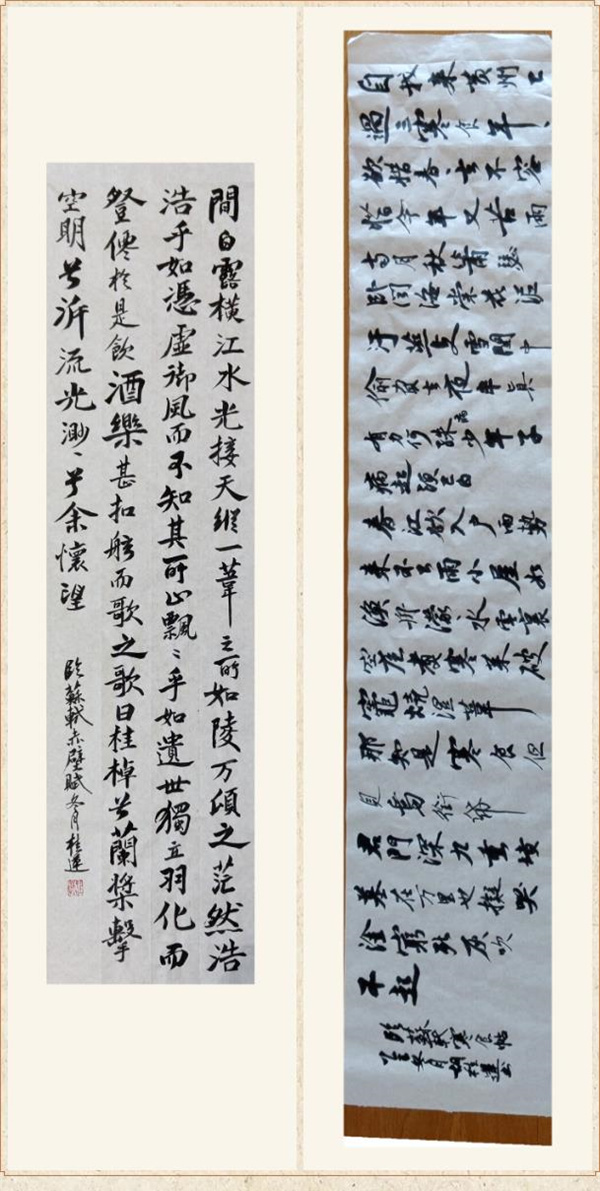 間白露橫江水光接天縱一葦之所如陵万頃之茫然浩
浩乎如憑虛御風而不知其所止飄〻乎如遺世獨立羽化而
登僊於是飲酒樂甚扣舷而歌之歌曰桂棹兮蘭槳擊
空明兮泝流光渺〻兮余懷望
臨蘇軾赤壁賦冬月桂蓮
自我来黄州已
過三寒食年〻
欲惜春〻去不容
惜今年又苦雨
两月秋蕭瑟
卧聞海棠花泥
汙燕支雪闇中
偷負去夜半真
有力何殊少年子病
病起頭已白
春江欲入户雨勢
来不已雨小屋如
漁舟濛〻水雲裏
空庖煮寒菜破
竈燒湿葦
那知是寒食但
見烏銜帋
君門深九重墳
墓在万里也擬哭
塗窮死灰吹
不起
臨蘇軾寒食帖
冬月胡桂蓮书